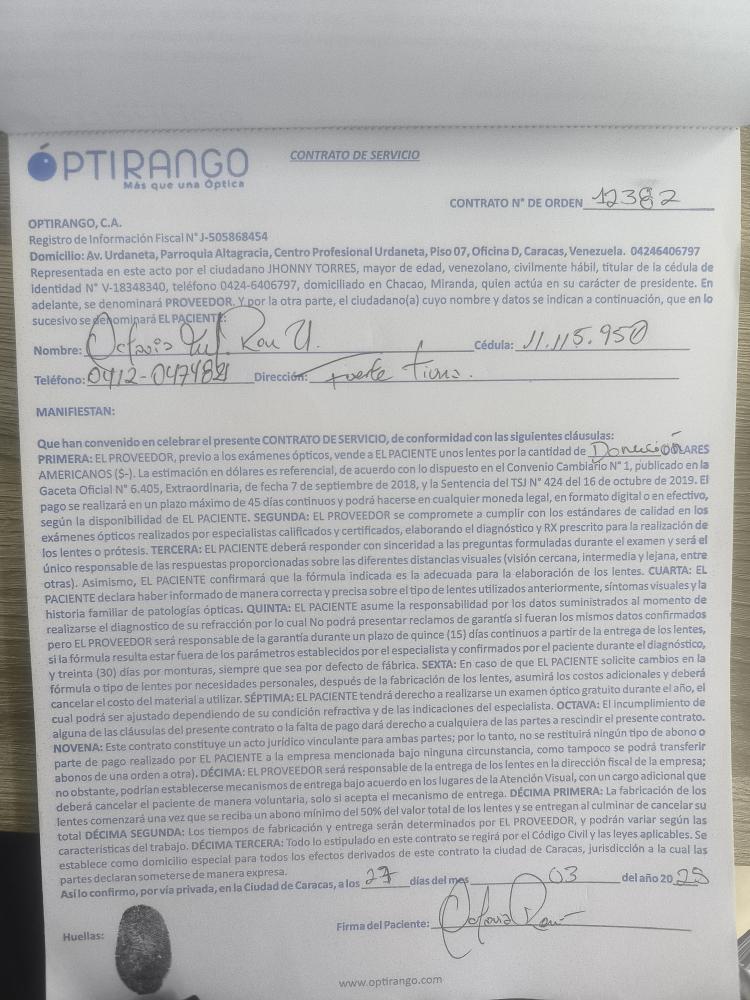 ÓPTIRANGO
Más que una Óptica
CONTRATO DE SERVICIO
CONTRATO N° DE ORDEN 12382
OPTIRANGO, C.A.
Registro de Información Fiscal N° J-505868454
Domicilio: Av. Urdaneta, Parroquia Altagracia, Centro Profesional Urdaneta, Piso 07, Oficina D, Caracas, Venezuela. 04246406797
Representada en este acto por el ciudadano JHONNY TORRES, mayor de edad, venezolano, civilmente hábil, titular de la cédula de
identidad N° V-18348340, teléfono 0424-6406797, domiciliado en Chacao, Miranda, quien actúa en su carácter de presidente. En
adelante, se denominará PROVEEDOR. Y por la otra parte, el ciudadano(a) cuyo nombre y datos se indican a continuación, que en lo
sucesivo se denominará EL PACIENTE:
Nombre: Octavio Cédula: 11.115.950
Teléfono: Dirección: Fuerte Tiuna.
MANIFIESTAN:
Que han convenido en celebrar el presente CONTRATO DE SERVICIO, de conformidad con las siguientes cláusulas:
PRIMERA: EL PROVEEDOR, previo a los exámenes ópticos, vende a EL PACIENTE unos lentes por la cantidad de Donación DÓLARES
AMERICANOS ($-). La estimación en dólares es referencial, de acuerdo con lo dispuesto en el Convenio Cambiario N° 1, publicado en la
Gaceta Oficial N° 6.405, Extraordinaria, de fecha 7 de septiembre de 2018, y la Sentencia del TSJ N° 424 del 16 de octubre de 2019. El
pago se realizará en un plazo máximo de 45 días continuos y podrá hacerse en cualquier moneda legal, en formato digital o en efectivo,
según la disponibilidad de EL PACIENTE. SEGUNDA: EL PROVEEDOR se compromete a cumplir con los estándares de calidad en los
exámenes ópticos realizados por especialistas calificados y certificados, elaborando el diagnóstico y RX prescrito para la realización de
los lentes o prótesis. TERCERA: EL PACIENTE deberá responder con sinceridad a las preguntas formuladas durante el examen y será el
único responsable de las respuestas proporcionadas sobre las diferentes distancias visuales (visión cercana, intermedia y lejana, entre
otras). Asimismo, EL PACIENTE confirmará que la fórmula indicada es la adecuada para la elaboración de los lentes. CUARTA: EL
PACIENTE declara haber informado de manera correcta y precisa sobre el tipo de lentes utilizados anteriormente, síntomas visuales y la
historia familiar de patologías ópticas. QUINTA: EL PACIENTE asume la responsabilidad por los datos suministrados al momento de
realizarse el diagnostico de su refracción por lo cual No podrá presentar reclamos de garantía si fueran los mismos datos confirmados
pero EL PROVEEDOR será responsable de la garantía durante un plazo de quince (15) días continuos a partir de la entrega de los lentes,
si la fórmula resulta estar fuera de los parámetros establecidos por el especialista y confirmados por el paciente durante el diagnóstico,
y treinta (30) días por monturas, siempre que sea por defecto de fábrica. SEXTA: En caso de que EL PACIENTE solicite cambios en la
fórmula o tipo de lentes por necesidades personales, después de la fabricación de los lentes, asumirá los costos adicionales y deberá
cancelar el costo del material a utilizar. SÉPTIMA: EL PACIENTE tendrá derecho a realizarse un examen óptico gratuito durante el año, el
cual podrá ser ajustado dependiendo de su condición refractiva y de las indicaciones del especialista. OCTAVA: El incumplimiento de
alguna de las cláusulas del presente contrato o la falta de pago dará derecho a cualquiera de las partes a rescindir el presente contrato.
NOVENA: Este contrato constituye un acto jurídico vinculante para ambas partes; por lo tanto, no se restituirá ningún tipo de abono o
parte de pago realizado por EL PACIENTE a la empresa mencionada bajo ninguna circunstancia, como tampoco se podrá transferir
abonos de una orden a otra). DÉCIMA: EL PROVEEDOR será responsable de la entrega de los lentes en la dirección fiscal de la empresa;
no obstante, podrían establecerse mecanismos de entrega bajo acuerdo en los lugares de la Atención Visual, con un cargo adicional que
deberá cancelar el paciente de manera voluntaria, solo si acepta el mecanismo de entrega. DÉCIMA PRIMERA: La fabricación de los
lentes comenzará una vez que se reciba un abono mínimo del 50% del valor total de los lentes y se entregan al culminar de cancelar su
total DÉCIMA SEGUNDA: Los tiempos de fabricación y entrega serán determinados por EL PROVEEDOR, y podrán variar según las
características del trabajo. DÉCIMA TERCERA: Todo lo estipulado en este contrato se regirá por el Código Civil y las leyes aplicables. Se
establece como domicilio especial para todos los efectos derivados de este contrato la ciudad de Caracas, jurisdicción a la cual las
partes declaran someterse de manera expresa.
Así lo confirmo, por vía privada, en la Ciudad de Caracas, a los 27 días del mes 03 del año 2025
Huellas:
Firma del Paciente:
www.optirango.com